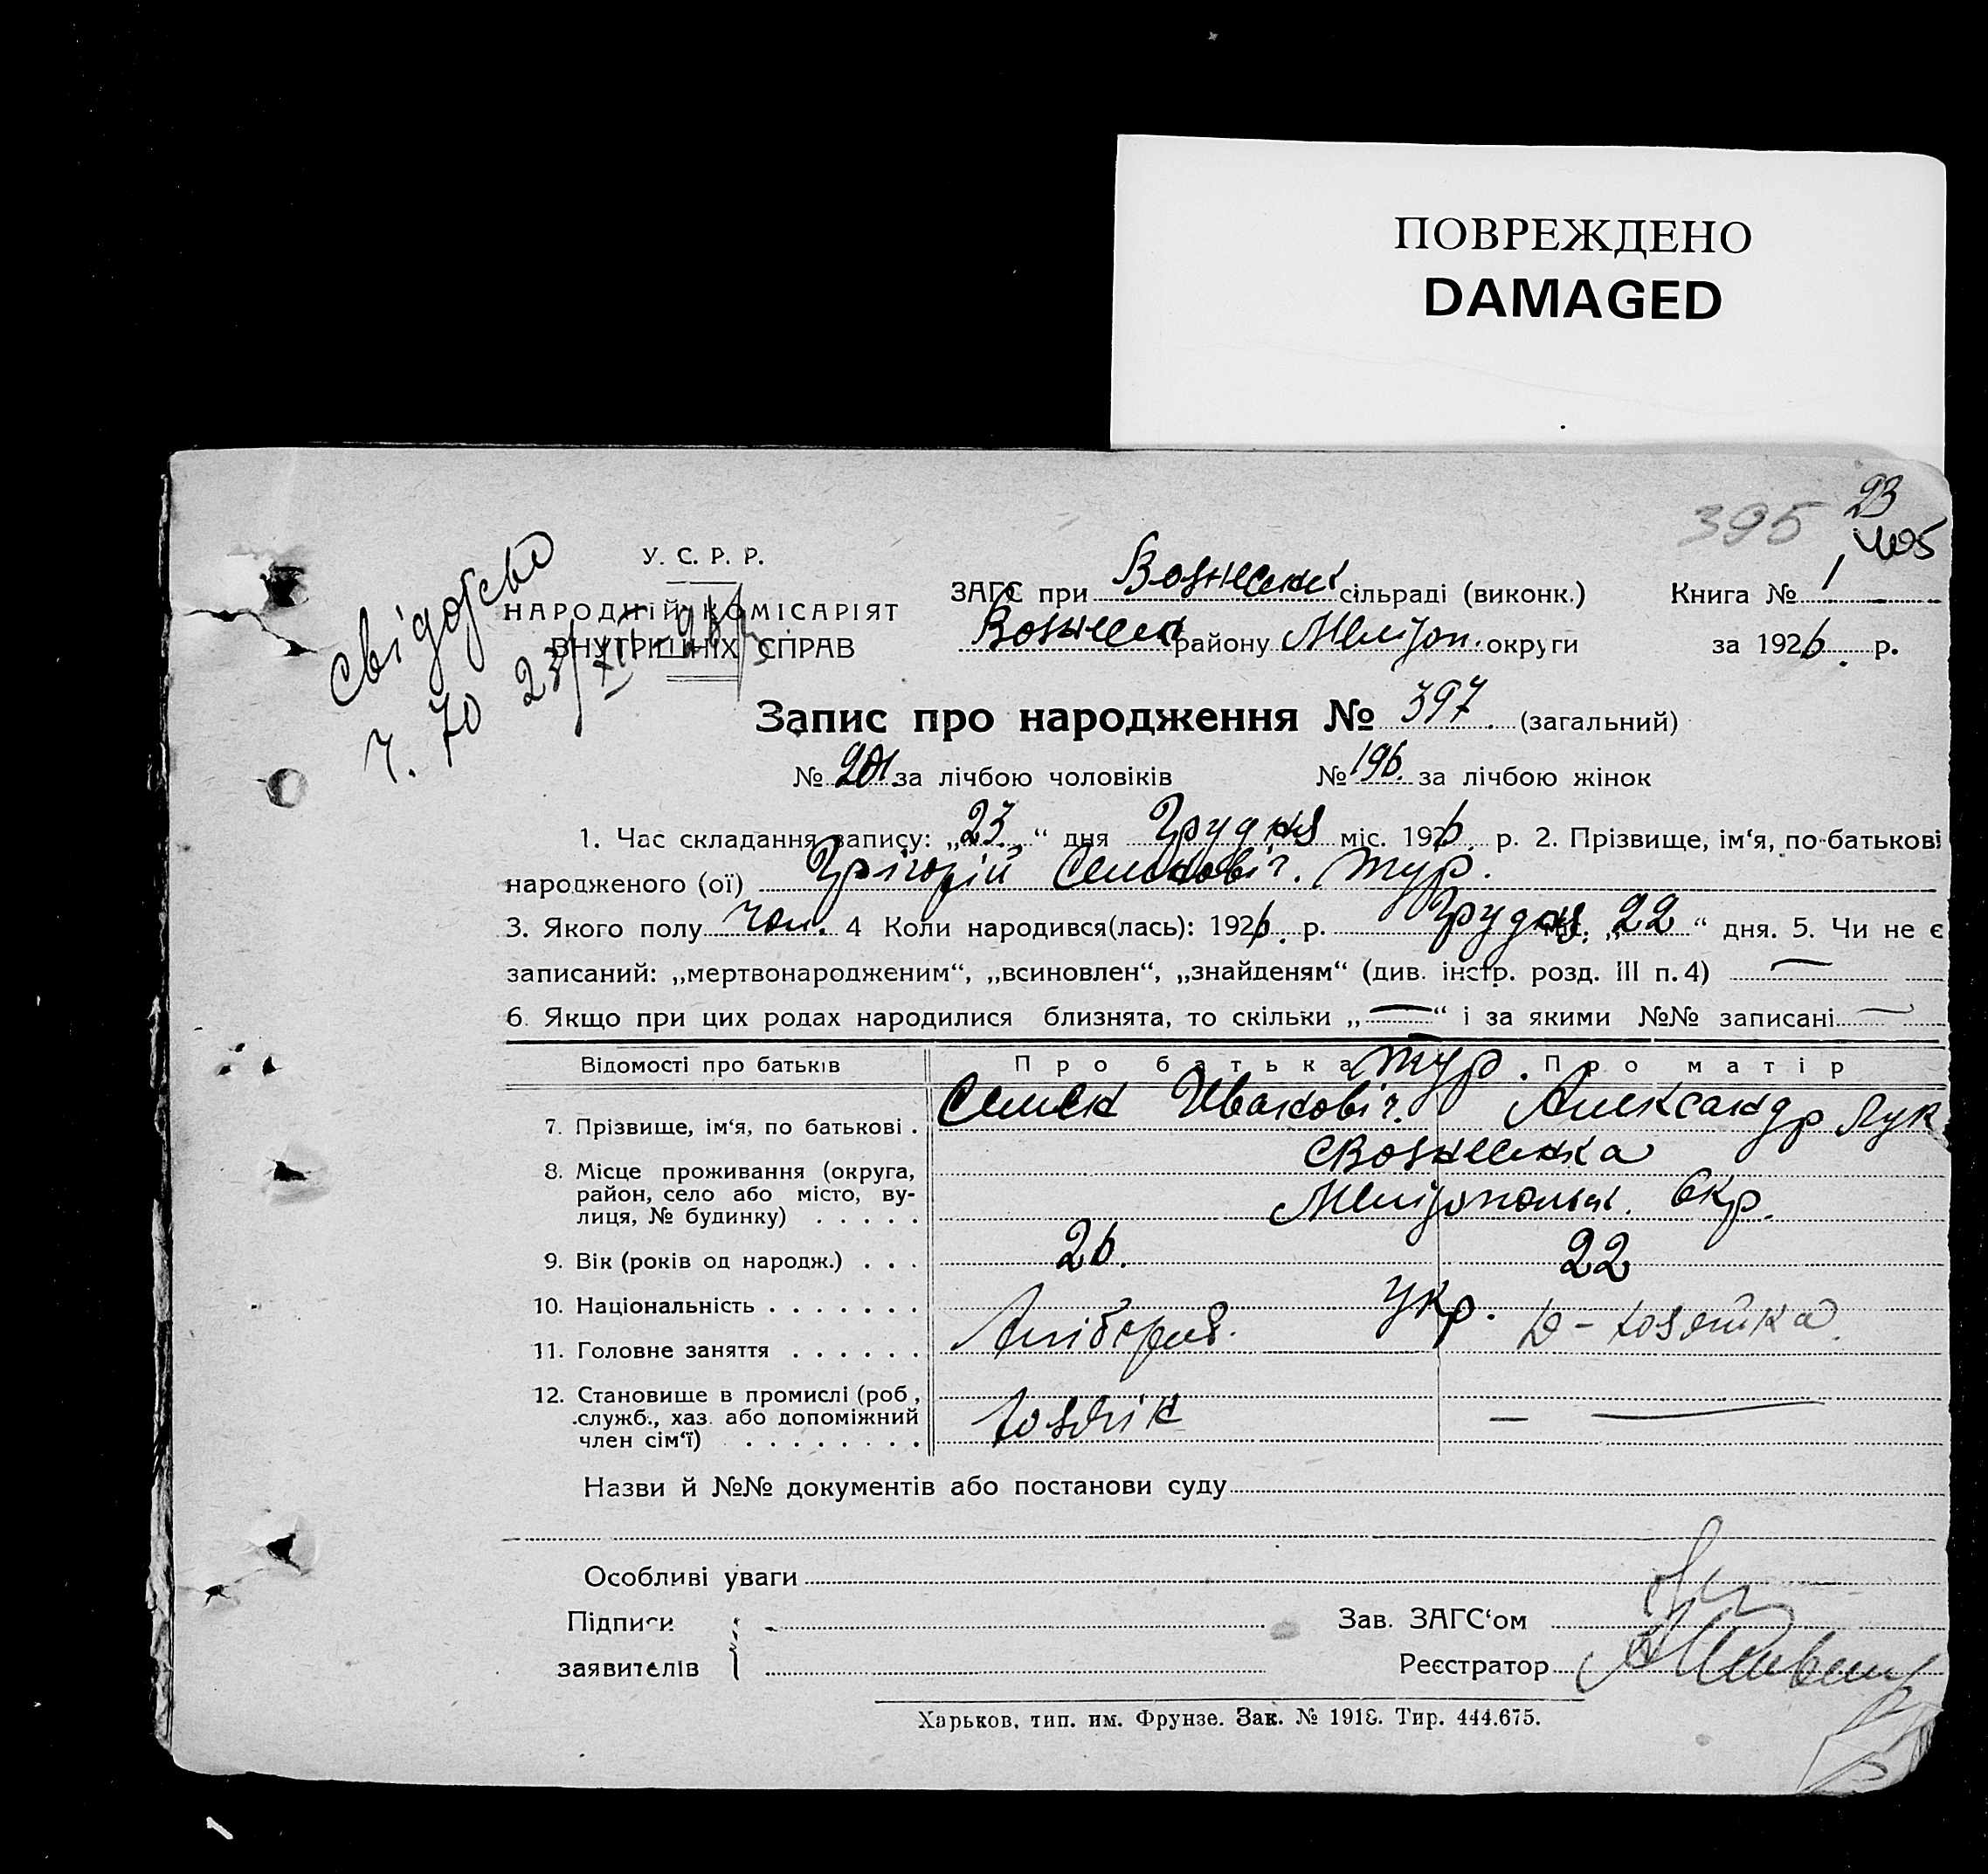 ПОВРЕЖДЕНО
DAMAGED
395
23
405
свідоство
ч. 70 23/XII-26 р
У. С. Р. Р.
НАРОДНІЙ КОМІСАРІЯТ
ВНУТРІШНІХ СПРАВ
ЗАГС при Вознесенск сільраді (виконк.) Книга № 1
Вознесен району Мелітоп. округи за 1926 р.
Запис про народження № 397. (загальний)
№ 201 за лічбою чоловіків № 196. за лічбою жінок
1. Час складання запису: „23“ дня Грудня міс. 1926 р. 2. Прізвище, ім‘я, по-батькові
народженого (ої) Грігорій Семеновіч. Тур.
3. Якого полу чол. 4 Коли народився(лась): 1926. р. Грудня міс. „22“ дня. 5. Чи не є
записаний: „мертвонародженим“, „всиновлен“, „знайденям“ (див. інстр. розд. III п. 4) —
6. Якщо при цих родах народилися близнята, то скільки „—“ і за якими №№ записані —
Відомості про батьків Про батька Тур. Про матір
7. Прізвище, ім‘я, по батькові . Семен Івановіч. Александр Лук
8. Місце проживання (округа, район, село або місто, вулиця, № будинку) . . . . . с Вознесенка
Мелітопольск. Окр.
9. Вік (років од народж.) . . . 26. 22
10. Національність . . . . . . . Укр.
11. Головне заняття . . . . . . Хлібороб. д-хозяйка
12. Становище в промислі (роб., служб., хаз. або допоміжний член сім‘ї) . . . . . . . . хозяїн — —
Назви й №№ документів або постанови суду
Особливі уваги
Підписи
заявителів
Зав. ЗАГС‘ом
Реєстратор
Харьков, тип. им. Фрунзе. Зак. № 1918. Тир. 444.675.